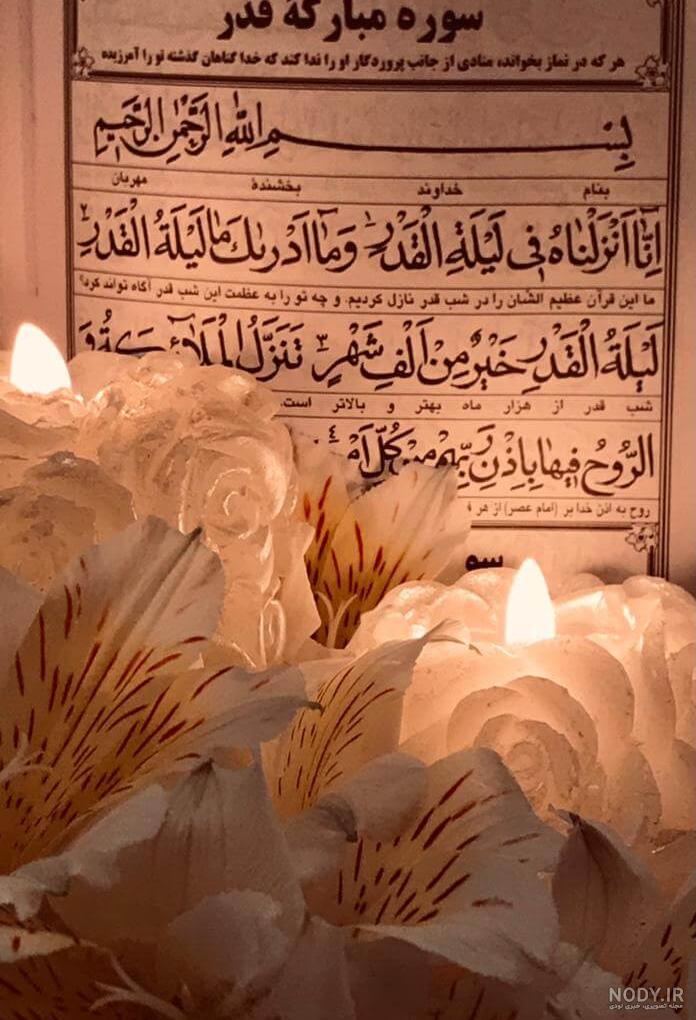 سوره مبارکهٔ قدر
هر که در نماز بخواند، منادی از جانب پروردگار او را ندا کند که خدا گناهان گذشته تو را آمرزیده
بِسْمِ اللهِ الرَّحْمٰنِ الرَّحیمِ
بنام خداوند بخشندهٔ مهربان
اِنّا اَنْزَلْناهُ فی لَیْلَةِ الْقَدْرِ ١ وَما اَدْریٰكَ ما لَیْلَةُ الْقَدْرِ ٢
ما این قرآن عظیم الشان را در شب قدر نازل کردیم. و چه تو را به عظمت این شب قدر آگاه تواند کرد؟
لَیْلَةُ الْقَدْرِ خَیْرٌ مِنْ اَلْفِ شَهْرٍ ٣ تَنَزَّلُ الْمَلآئِکَةُ وَ
شب قدر از هزار ماه بهتر و بالاتر است.
الرُّوحُ فیها بِاِذْنِ رَبِّهِمْ مِنْ کُلِّ ٤
روح به اذن خدا بر (امام عصر) از هر
NODY.IR
مجله تصویری، خبری نودی